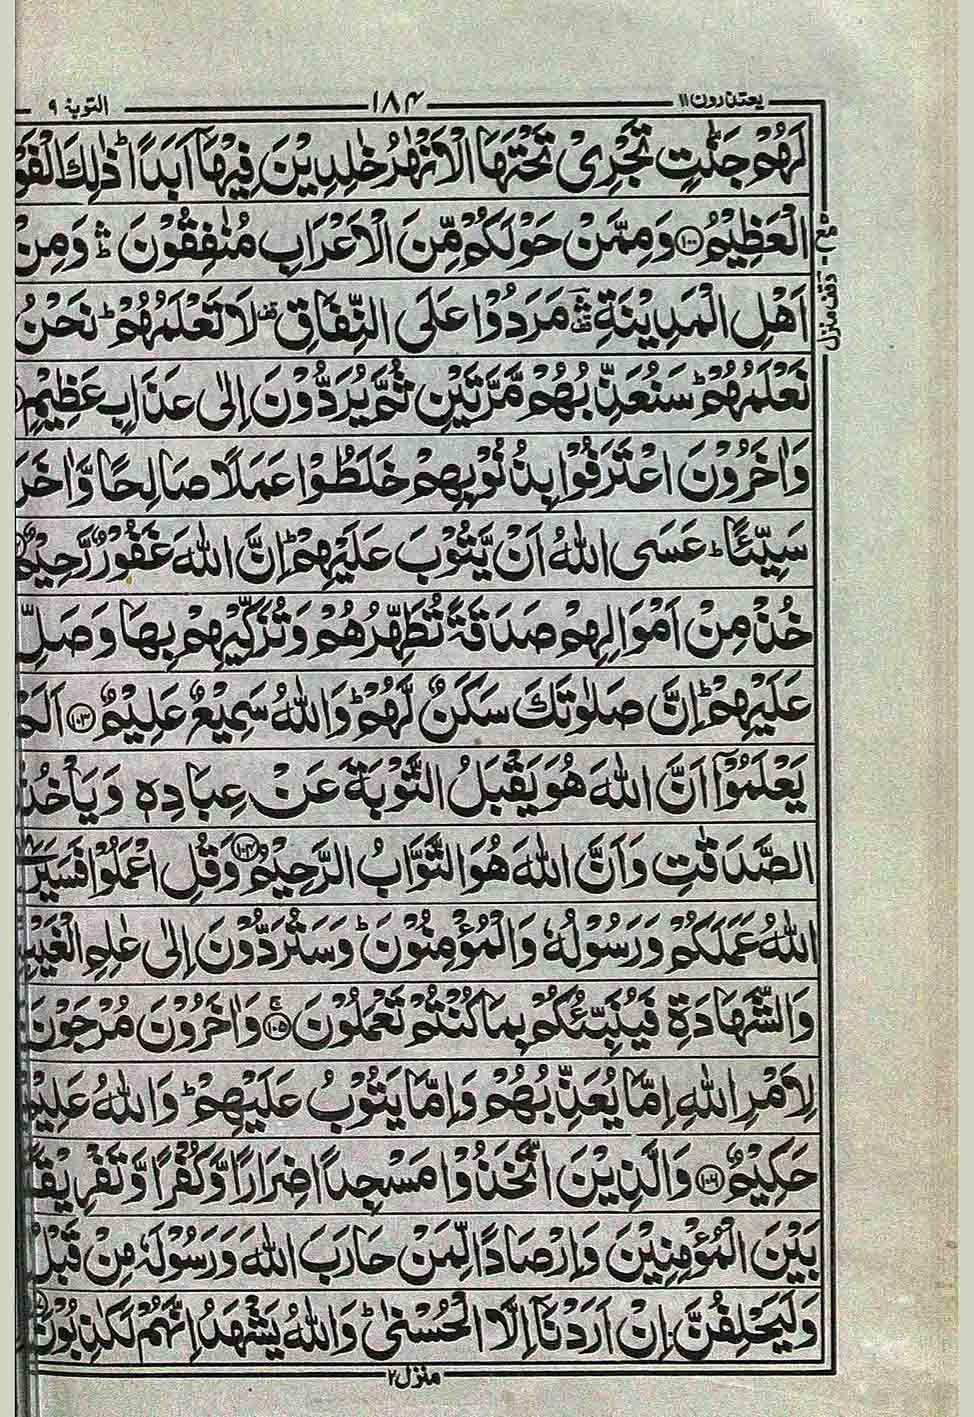 یعتذرون ۱۱ ۱۸۴ التوبة ۹
لَهُمْ جَنّٰتٍ تَجْرِیْ تَحْتَهَا الْاَنْهٰرُ خٰلِدِیْنَ فِیْهَاۤ اَبَدًا ؕ ذٰلِكَ
الْعَظِیْمُ ﴿۱۰۰﴾ وَ مِمَّنْ حَوْلَكُمْ مِّنَ الْاَعْرَابِ مُنٰفِقُوْنَ ۛؕ وَ مِنْ
اَهْلِ الْمَدِیْنَةِ ۛؔ۫ مَرَدُوْا عَلَی النِّفَاقِ ۫ لَا تَعْلَمُهُمْ ؕ نَحْنُ
نَعْلَمُهُمْ ؕ سَنُعَذِّبُهُمْ مَّرَّتَیْنِ ثُمَّ یُرَدُّوْنَ اِلٰی عَذَابٍ عَظِیْمٍ
وَ اٰخَرُوْنَ اعْتَرَفُوْا بِذُنُوْبِهِمْ خَلَطُوْا عَمَلًا صَالِحًا وَّ اٰخَرَ
سَیِّئًا ؕ عَسَی اللّٰهُ اَنْ یَّتُوْبَ عَلَیْهِمْ ؕ اِنَّ اللّٰهَ غَفُوْرٌ رَّحِیْمٌ
خُذْ مِنْ اَمْوَالِهِمْ صَدَقَةً تُطَهِّرُهُمْ وَ تُزَكِّیْهِمْ بِهَا وَ صَلِّ
عَلَیْهِمْ ؕ اِنَّ صَلٰوتَكَ سَكَنٌ لَّهُمْ ؕ وَ اللّٰهُ سَمِیْعٌ عَلِیْمٌ ﴿۱۰۳﴾ اَلَمْ
یَعْلَمُوْۤا اَنَّ اللّٰهَ هُوَ یَقْبَلُ التَّوْبَةَ عَنْ عِبَادِهٖ وَ یَاْخُذُ
الصَّدَقٰتِ وَ اَنَّ اللّٰهَ هُوَ التَّوَّابُ الرَّحِیْمُ ﴿۱۰۴﴾ وَ قُلِ اعْمَلُوْا فَسَیَرَی
اللّٰهُ عَمَلَكُمْ وَ رَسُوْلُهٗ وَ الْمُؤْمِنُوْنَ ؕ وَ سَتُرَدُّوْنَ اِلٰی عٰلِمِ الْغَیْبِ
وَ الشَّهَادَةِ فَیُنَبِّئُكُمْ بِمَا كُنْتُمْ تَعْمَلُوْنَ ﴿۱۰۵﴾ۚ وَ اٰخَرُوْنَ مُرْجَوْنَ
لِاَمْرِ اللّٰهِ اِمَّا یُعَذِّبُهُمْ وَ اِمَّا یَتُوْبُ عَلَیْهِمْ ؕ وَ اللّٰهُ عَلِیْمٌ
حَكِیْمٌ ﴿۱۰۶﴾ وَ الَّذِیْنَ اتَّخَذُوْا مَسْجِدًا ضِرَارًا وَّ كُفْرًا وَّ تَفْرِیْقًۢا
بَیْنَ الْمُؤْمِنِیْنَ وَ اِرْصَادًا لِّمَنْ حَارَبَ اللّٰهَ وَ رَسُوْلَهٗ مِنْ قَبْلُ
وَ لَیَحْلِفُنَّ اِنْ اَرَدْنَاۤ اِلَّا الْحُسْنٰی ؕ وَ اللّٰهُ یَشْهَدُ اِنَّهُمْ لَكٰذِبُوْنَ
منزل ۲